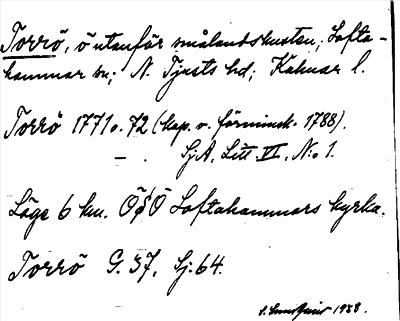 Torrö, ö utanför smålandskusten, Lofta-
hammar sn; N. Tjusts hd; Kalmar l.
Torrö 1771 o. 72 (kop. o. förminsk. 1788).
— . SjA, Litt. VI, N:o 1.
Läge 6 km. ÖSÖ Loftahammars kyrka.
Torrö G. 37, Sj. 64.
1938.